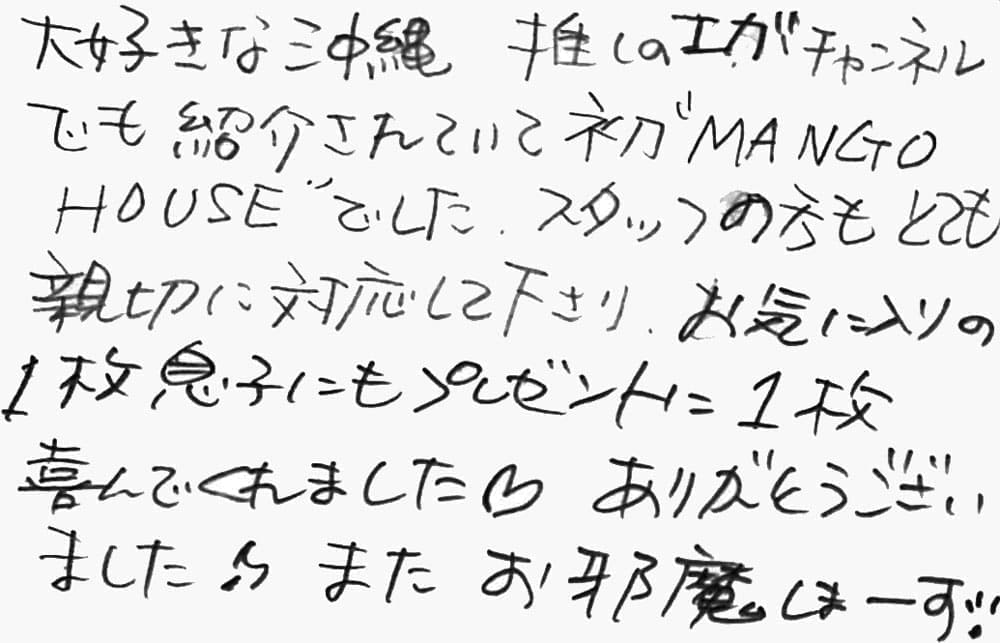 大好きな沖縄 推しのエガチャンネル
でも紹介されていて初"MANGO
HOUSE"でした.スタッフの方もとても
親切に対応して下さり.お気に入りの
1枚息子にもプレゼントに1枚
喜んでくれました♡ ありがとうござい
ました♪ また お邪魔しまーす!!